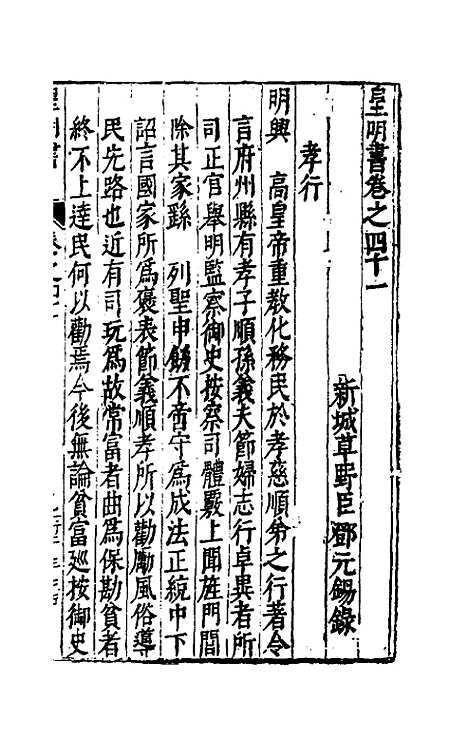 皇明書卷之四十一
新城草野臣鄧元錫錄
孝行
明興　高皇帝重教化務民於孝慈順弟之行著令
言府州縣有孝子順孫義夫節婦志行卓異者所
司正官舉明監察御史按察司體覈上聞旌門閭
除其家繇　列聖申飭不啻守為成法正統中下
詔言國家所為褒表節義順孝所以勸勵風俗導
民先路也近有司玩為故常富者曲為保勘貧者
終不上達民何以勸焉今後無論貧富廵按御史